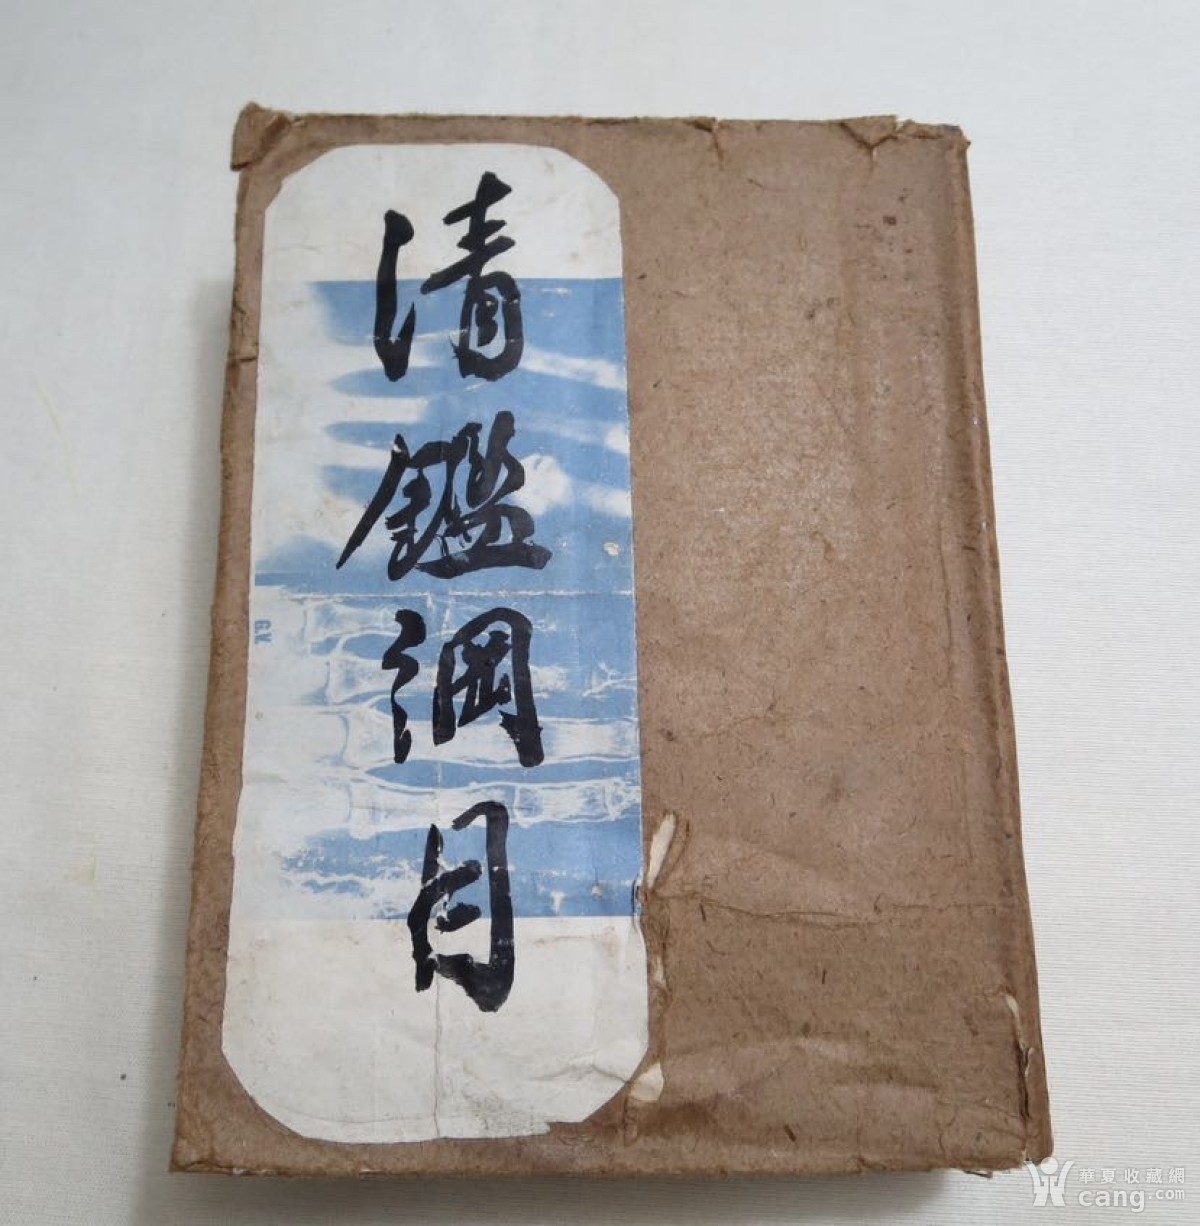 清鑑綱目
華夏收藏網
cang.com